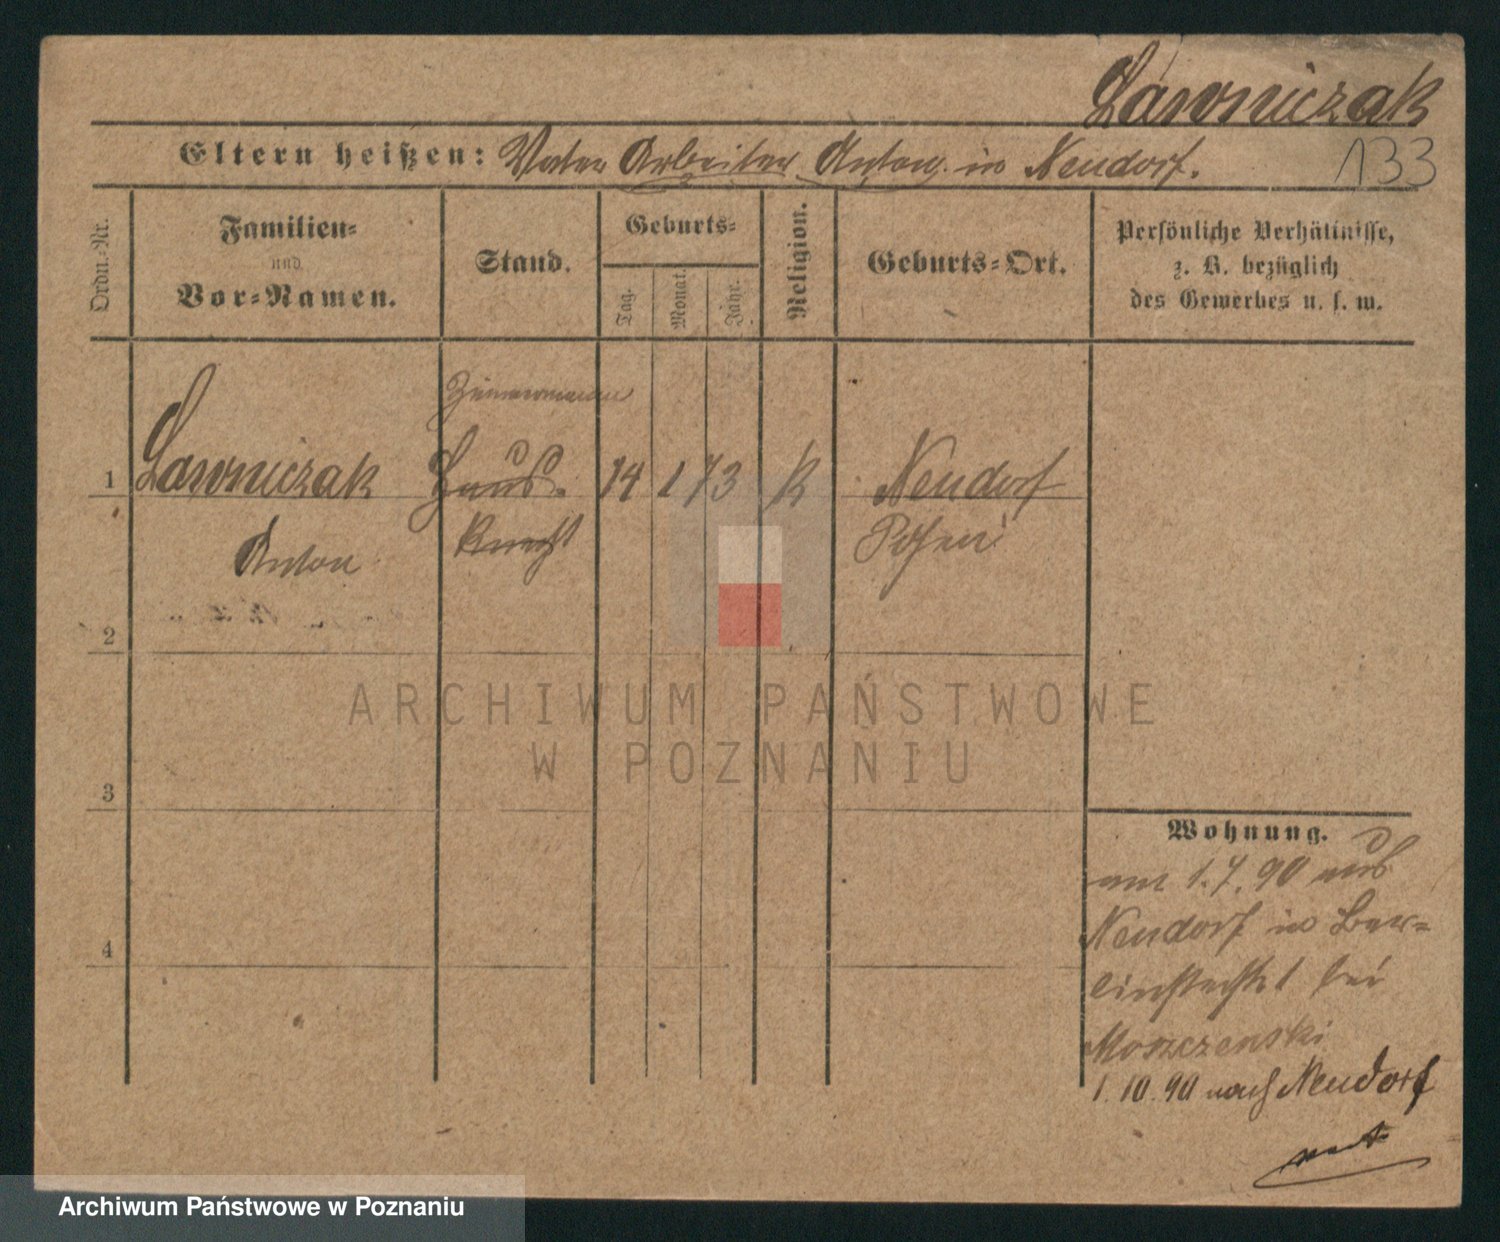 Lawniczak
Eltern heißen: Vater Arbeiter Anton in Neudorf.
133
Ordn.-Nr.
Familien-
und
Vor-Namen.
Stand.
Geburts-
Tag.
Monat.
Jahr.
Religion.
Geburts-Ort.
Persönliche Verhältnisse,
z. B. bezüglich
des Gewerbes u. s. w.
Zimmermann
1 Lawniczak Haus- 14 1 73 K Neudorf
Anton Knecht Posen
2
ARCHIWUM PAŃSTWOWE
W POZNANIU
3
4
Wohnung.
am 1.7.90 aus
Neudorf in Ber-
linstraße 1 bei
Moszczenski
1.10.90 nach Neudorf
Archiwum Państwowe w Poznaniu